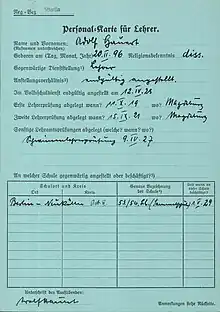 Reg.-Bez. Berlin
Personal-Karte für Lehrer.
Name und Vornamen: Adolf Hauert
(Rufnamen unterstreichen)
Geboren am (Tag, Monat, Jahr) 20.11.96 Religionsbekenntnis diss.
Gegenwärtige Dienststellung¹) Lehrer
Anstellungsverhältnis²) endgültig angestellt
Im Volksschuldienst endgültig angestellt am 12.IV.28
Erste Lehrerprüfung abgelegt wann? 11.8.19 wo? Magdeburg
Zweite Lehrerprüfung abgelegt wann? 15.12.21 wo? Magdeburg
Sonstige Lehramtsprüfungen abgelegt (welche? wann? wo?)
9.IV.27
An welcher Schule gegenwärtig angestellt oder beschäftigt?³)
Schulort und Kreis
Ort Kreis
Genaue Bezeichnung der Schule⁴)
Seit wann an dieser Schule beschäftigt?
Berlin - Neukölln 53/54. 1.V.29
Unterschrift des Ausfüllenden:
Adolf Hauert
Anmerkungen siehe Rückseite.